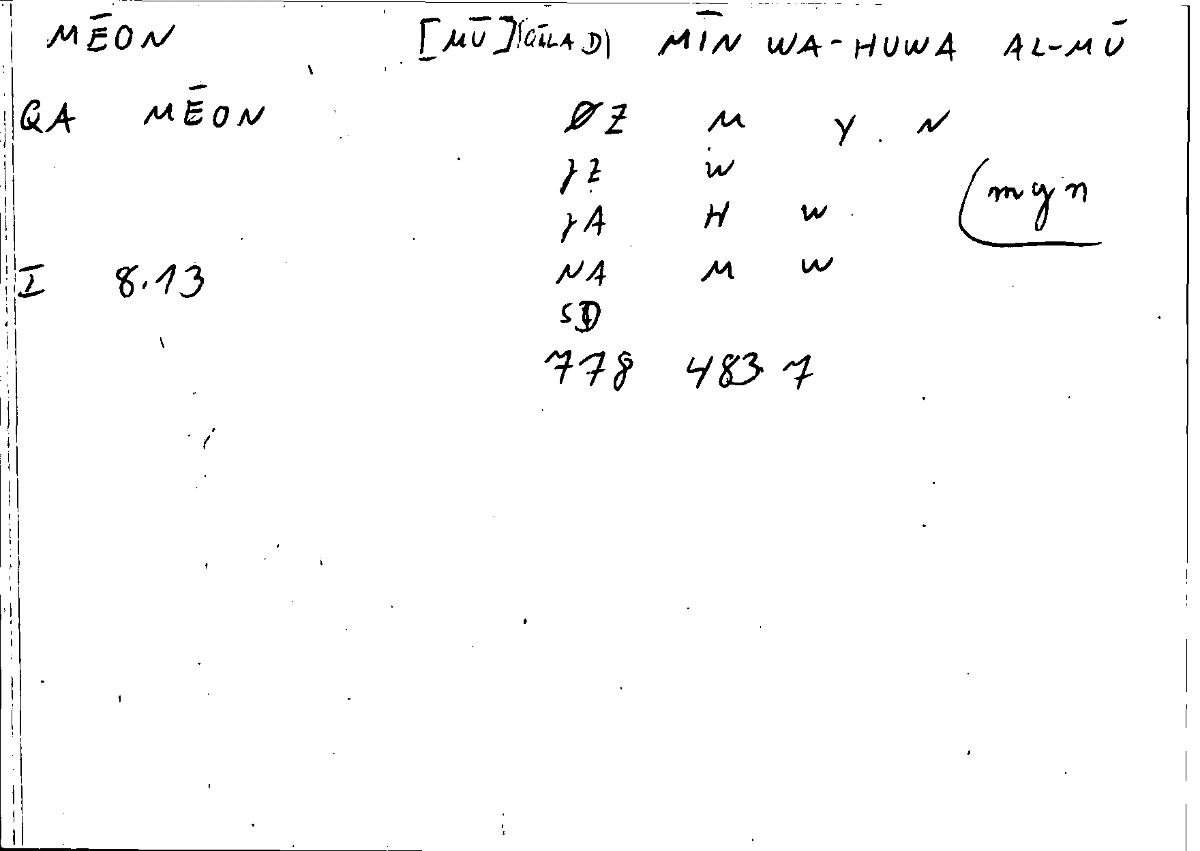 MĒON [MŪ] MĪN WA-HUWA AL-MŪ
QA MĒON ØZ M Y . N
ȷZ W
(mgn
ȷA H W
I 8.13 NA M W
SD
778 483 7